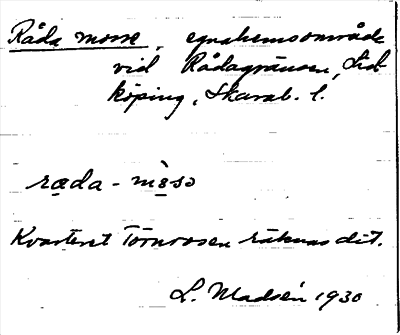 Råda mosse, egnahemsområde
vid Rådagränsen, Lid-
köping, Skarab. l.
ræda - mòsɔ
Kvarteret Törnrosen räknas dit.
L. Madsén 1930